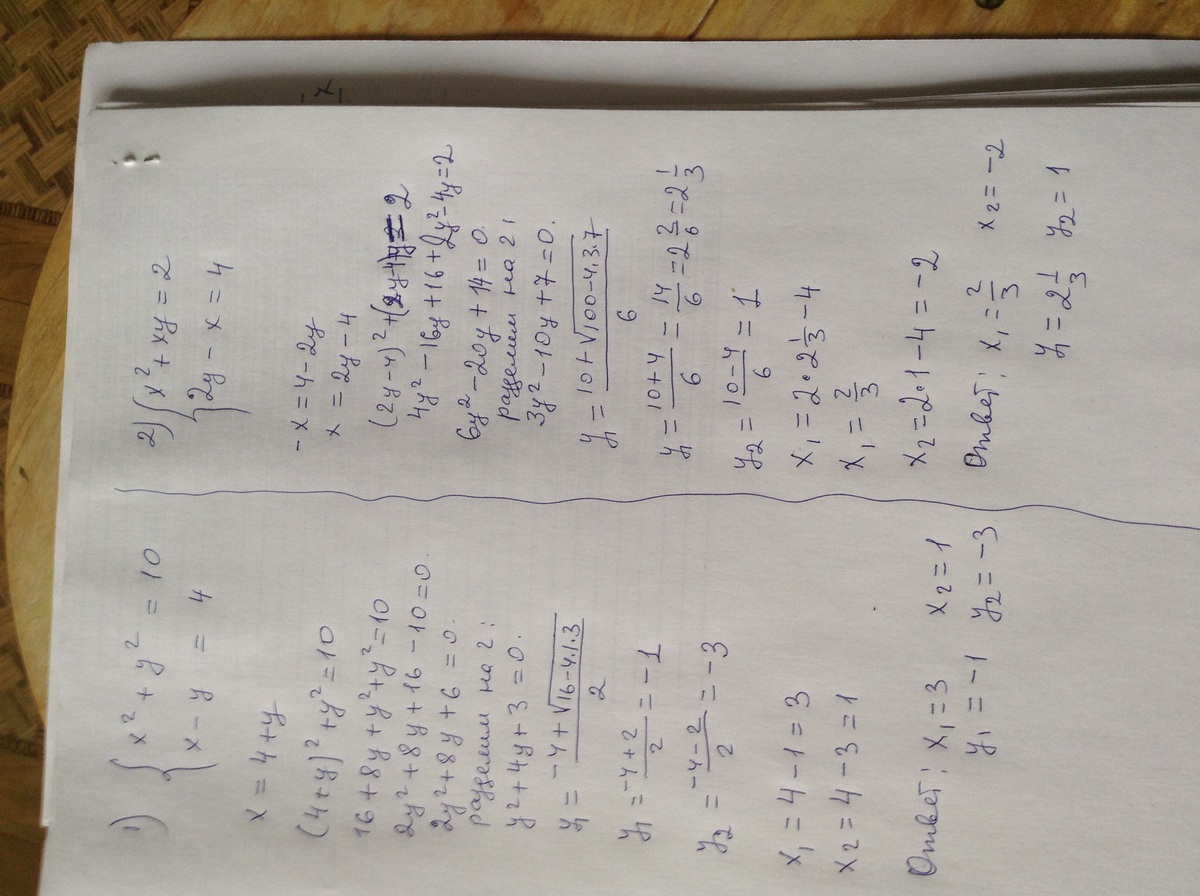 1) { x² + y² = 10
x - y = 4
x = 4 + y
(4+y)² + y² = 10
16 + 8y + y² + y² = 10
2y² + 8y + 16 - 10 = 0.
2y² + 8y + 6 = 0.
разделим на 2:
y² + 4y + 3 = 0.
y₁ = (-4 + √(16-4·1·3))/2
y₁ = (-4+2)/2 = -1
y₂ = (-4-2)/2 = -3
x₁ = 4 - 1 = 3
x₂ = 4 - 3 = 1
Ответ: x₁ = 3 x₂ = 1
y₁ = -1 y₂ = -3
2) { x² + xy = 2
2y - x = 4
-x = 4 - 2y
x = 2y - 4
(2y-4)² + (2y-4)y = 2
4y² - 16y + 16 + 2y² - 4y = 2
6y² - 20y + 14 = 0.
разделим на 2:
3y² - 10y + 7 = 0.
y₁ = (10 + √(100-4·3·7))/6
y₁ = (10+4)/6 = 14/6 = 2 2/6 = 2 1/3
y₂ = (10-4)/6 = 1
x₁ = 2 · 2 1/3 - 4
x₁ = 2/3
x₂ = 2·1 - 4 = -2
Ответ: x₁ = 2/3 x₂ = -2
y₁ = 2 1/3 y₂ = 1